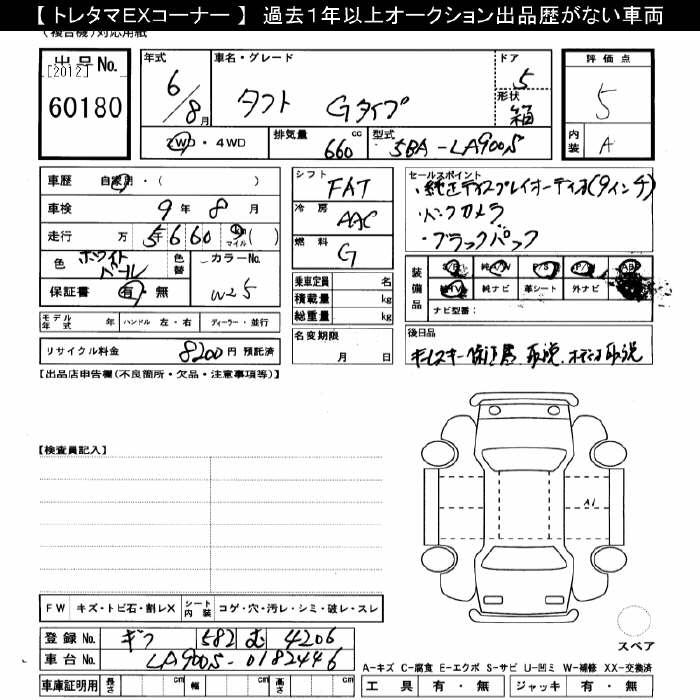 【 トレタマEXコーナー 】 過去1年以上オークション出品歴がない車両
(複合機)対応用紙
出品No.
[2012]
60180
年式
6/8月
車名・グレード
タフト Gタイプ
ドア
5
形状
箱
評価点
5
内装
A
2WD・4WD
排気量
660 cc
型式
5BA-LA900S
車歴 自家用・( )
車検 9年 8月
走行 万 5千660 km マイル ( )
色 ホワイトパール
色替
カラーNo.
W25
保証書 有・無
シフト
FAT
冷房
AAC
燃料
G
セールスポイント
・純正ディスプレイオーディオ(9インチ)
・バックカメラ
・ブラックパック
装備品
S/R 純A/W P/S P/W AB
純TV 純ナビ 革シート 外ナビ
ナビ型番:
乗車定員 名
積載量 kg
総重量 kg
モデル年式 年 ハンドル 左・右 ディーラー・並行
名変期限
月 日
後日品
キーレスキー 保証書 取説 オーディオ取説
リサイクル料金 8200円 預託済
【出品店申告欄(不良箇所・欠品・注意事項等)】
【検査員記入】
A1
FW キズ・トビ石・割レX シート内装 コゲ・穴・汚レ・シミ・破レ・スレ
スペア
登録No. ギフ 582 む 4206
車台No. LA900S-0182446
A-キズ C-腐食 E-エクボ S-サビ U-凹ミ W-補修 XX-交換済
車庫証明用 長さ cm 幅 cm 高さ cm
工具 有・無 ジャッキ 有・無